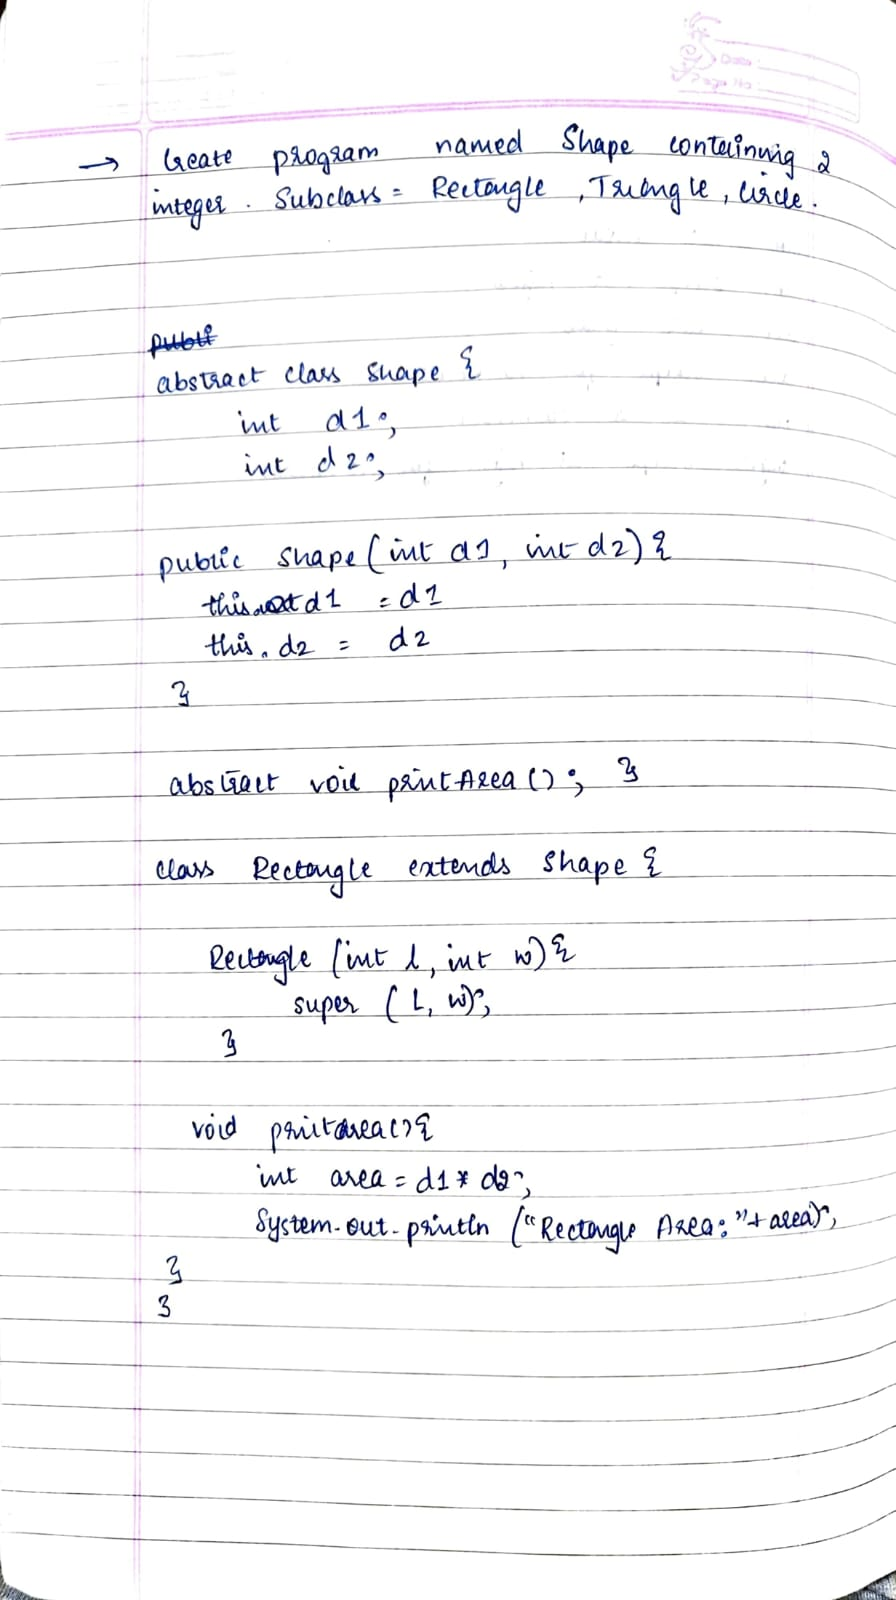 Date:
Page No:
→ Create program named Shape containing 2
integer. Subclass = Rectangle, Triangle, Circle.
abstract class Shape {
int d1;
int d2;
public Shape (int d1, int d2) {
this d1 = d1
this. d2 = d2
}
abstract void printArea (); }
class Rectangle extends Shape {
Rectangle (int l, int w) {
super (L, w);
}
void printarea() {
int area = d1 * d2;
System.out.println ("Rectangle Area: "+ area);
}
}